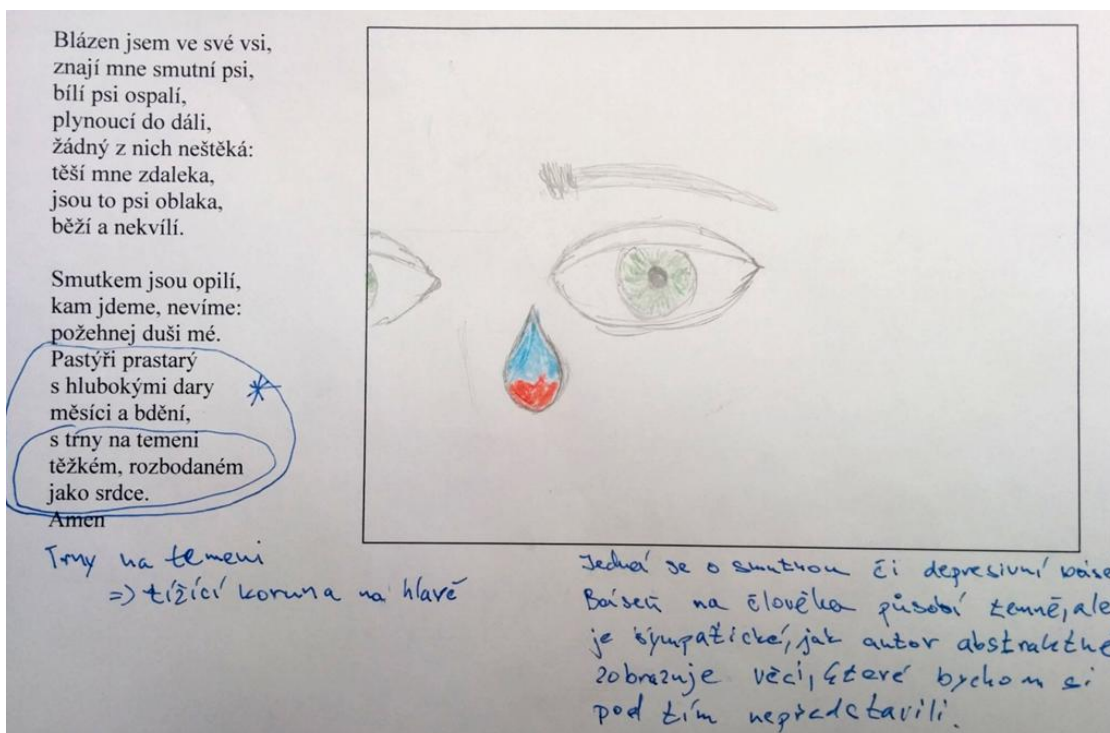 Blázen jsem ve své vsi,
znají mne smutní psi,
bílí psi ospalí,
plynoucí do dáli,
žádný z nich neštěká:
těší mne zdaleka,
jsou to psi oblaka,
běží a nekvílí.
Smutkem jsou opilí,
kam jdeme, nevíme:
požehnej duši mé.
Pastýři prastarý
s hlubokými dary
měsíci a bdění,
s trny na temeni
těžkém, rozbodaném
jako srdce.
Amen
Trny na temeni
=> tížící koruna na hlavě
Jedná se o smutnou či depresivní báse
Báseň na člověka působí temně, ale
je sympatické, jak autor abstraktně
zobrazuje věci, které bychom si
pod tím nepředstavili.